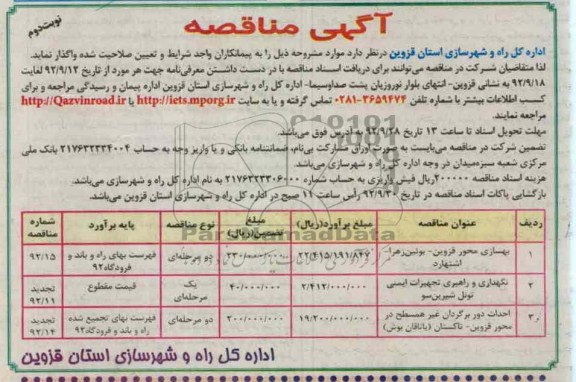 آگهی مناقصه
نوبت دوم
اداره کل راه و شهرسازی استان قزوین درنظر دارد موارد مشروحه ذیل را به پیمانکاران واجد شرایط و تعیین صلاحیت شده واگذار نماید.
لذا متقاضیان شرکت در مناقصه می‌توانند برای دریافت اسناد مناقصه با در دست داشتن معرفی‌نامه جهت هر مورد از تاریخ ۹۲/۹/۱۲ لغایت
۹۲/۹/۱۸ به نشانی قزوین- انتهای بلوار نوروزیان پشت صداوسیما- اداره کل راه و شهرسازی استان قزوین اداره پیمان و رسیدگی مراجعه و برای
کسب اطلاعات بیشتر با شماره تلفن ۳۶۵۹۴۷۴-۰۲۸۱ تماس گرفته و یا به سایت http://iets.mporg.ir یا http://Qazvinroad.ir
مراجعه نمایند.
مهلت تحویل اسناد تا ساعت ۱۳ تاریخ ۹۲/۹/۲۸ به آدرس فوق می‌باشد.
تضمین شرکت در مناقصه می‌بایست به صورت اوراق مشارکت بی‌نام، ضمانتنامه بانکی و یا واریز وجه به حساب ۲۱۷۶۳۲۳۳۴۰۰۴ بانک ملی
مرکزی شعبه سبزه‌میدان در وجه اداره کل راه و شهرسازی می‌باشد.
هزینه اسناد مناقصه ۲۰۰۰۰۰ ریال فیش واریزی به حساب شماره ۲۱۷۶۳۲۳۳۰۶۰۰۰ به نام اداره کل راه و شهرسازی می‌باشد.
بازگشایی پاکات اسناد مناقصه در تاریخ ۹۲/۹/۳۰ رأس ساعت ۱۱ صبح در اداره کل راه و شهرسازی استان قزوین می‌باشد.
ردیف عنوان مناقصه مبلغ برآورد(ریال) مبلغ تضمین(ریال) نوع مناقصه پایه برآورد شماره مناقصه
۱ بهسازی محور قزوین- بوئین‌زهرا- اشتهارد ۲۲/۴۱۵/۱۹۱/۸۴۷ ۲۳۰/۰۰۰/۰۰۰ دو مرحله‌ای فهرست بهای راه و باند و فرودگاه۹۲ ۹۲/۱۵
۲ نگهداری و راهبری تجهیزات ایمنی تونل شیرین‌سو ۲/۴۱۲/۰۰۰/۰۰۰ ۴۰/۰۰۰/۰۰۰ یک مرحله‌ای قیمت مقطوع تجدید ۹۲/۱۱
۳ احداث دور برگردان غیر همسطح در محور قزوین- تاکستان (باتاقان یوش) ۱۹/۲۰۰/۰۰۰/۰۰۰ ۲۰۰/۰۰۰/۰۰۰ دو مرحله‌ای فهرست بهای تجمیع شده راه و باند و فرودگاه۹۲ تجدید ۹۲/۱۴
اداره کل راه و شهرسازی استان قزوین